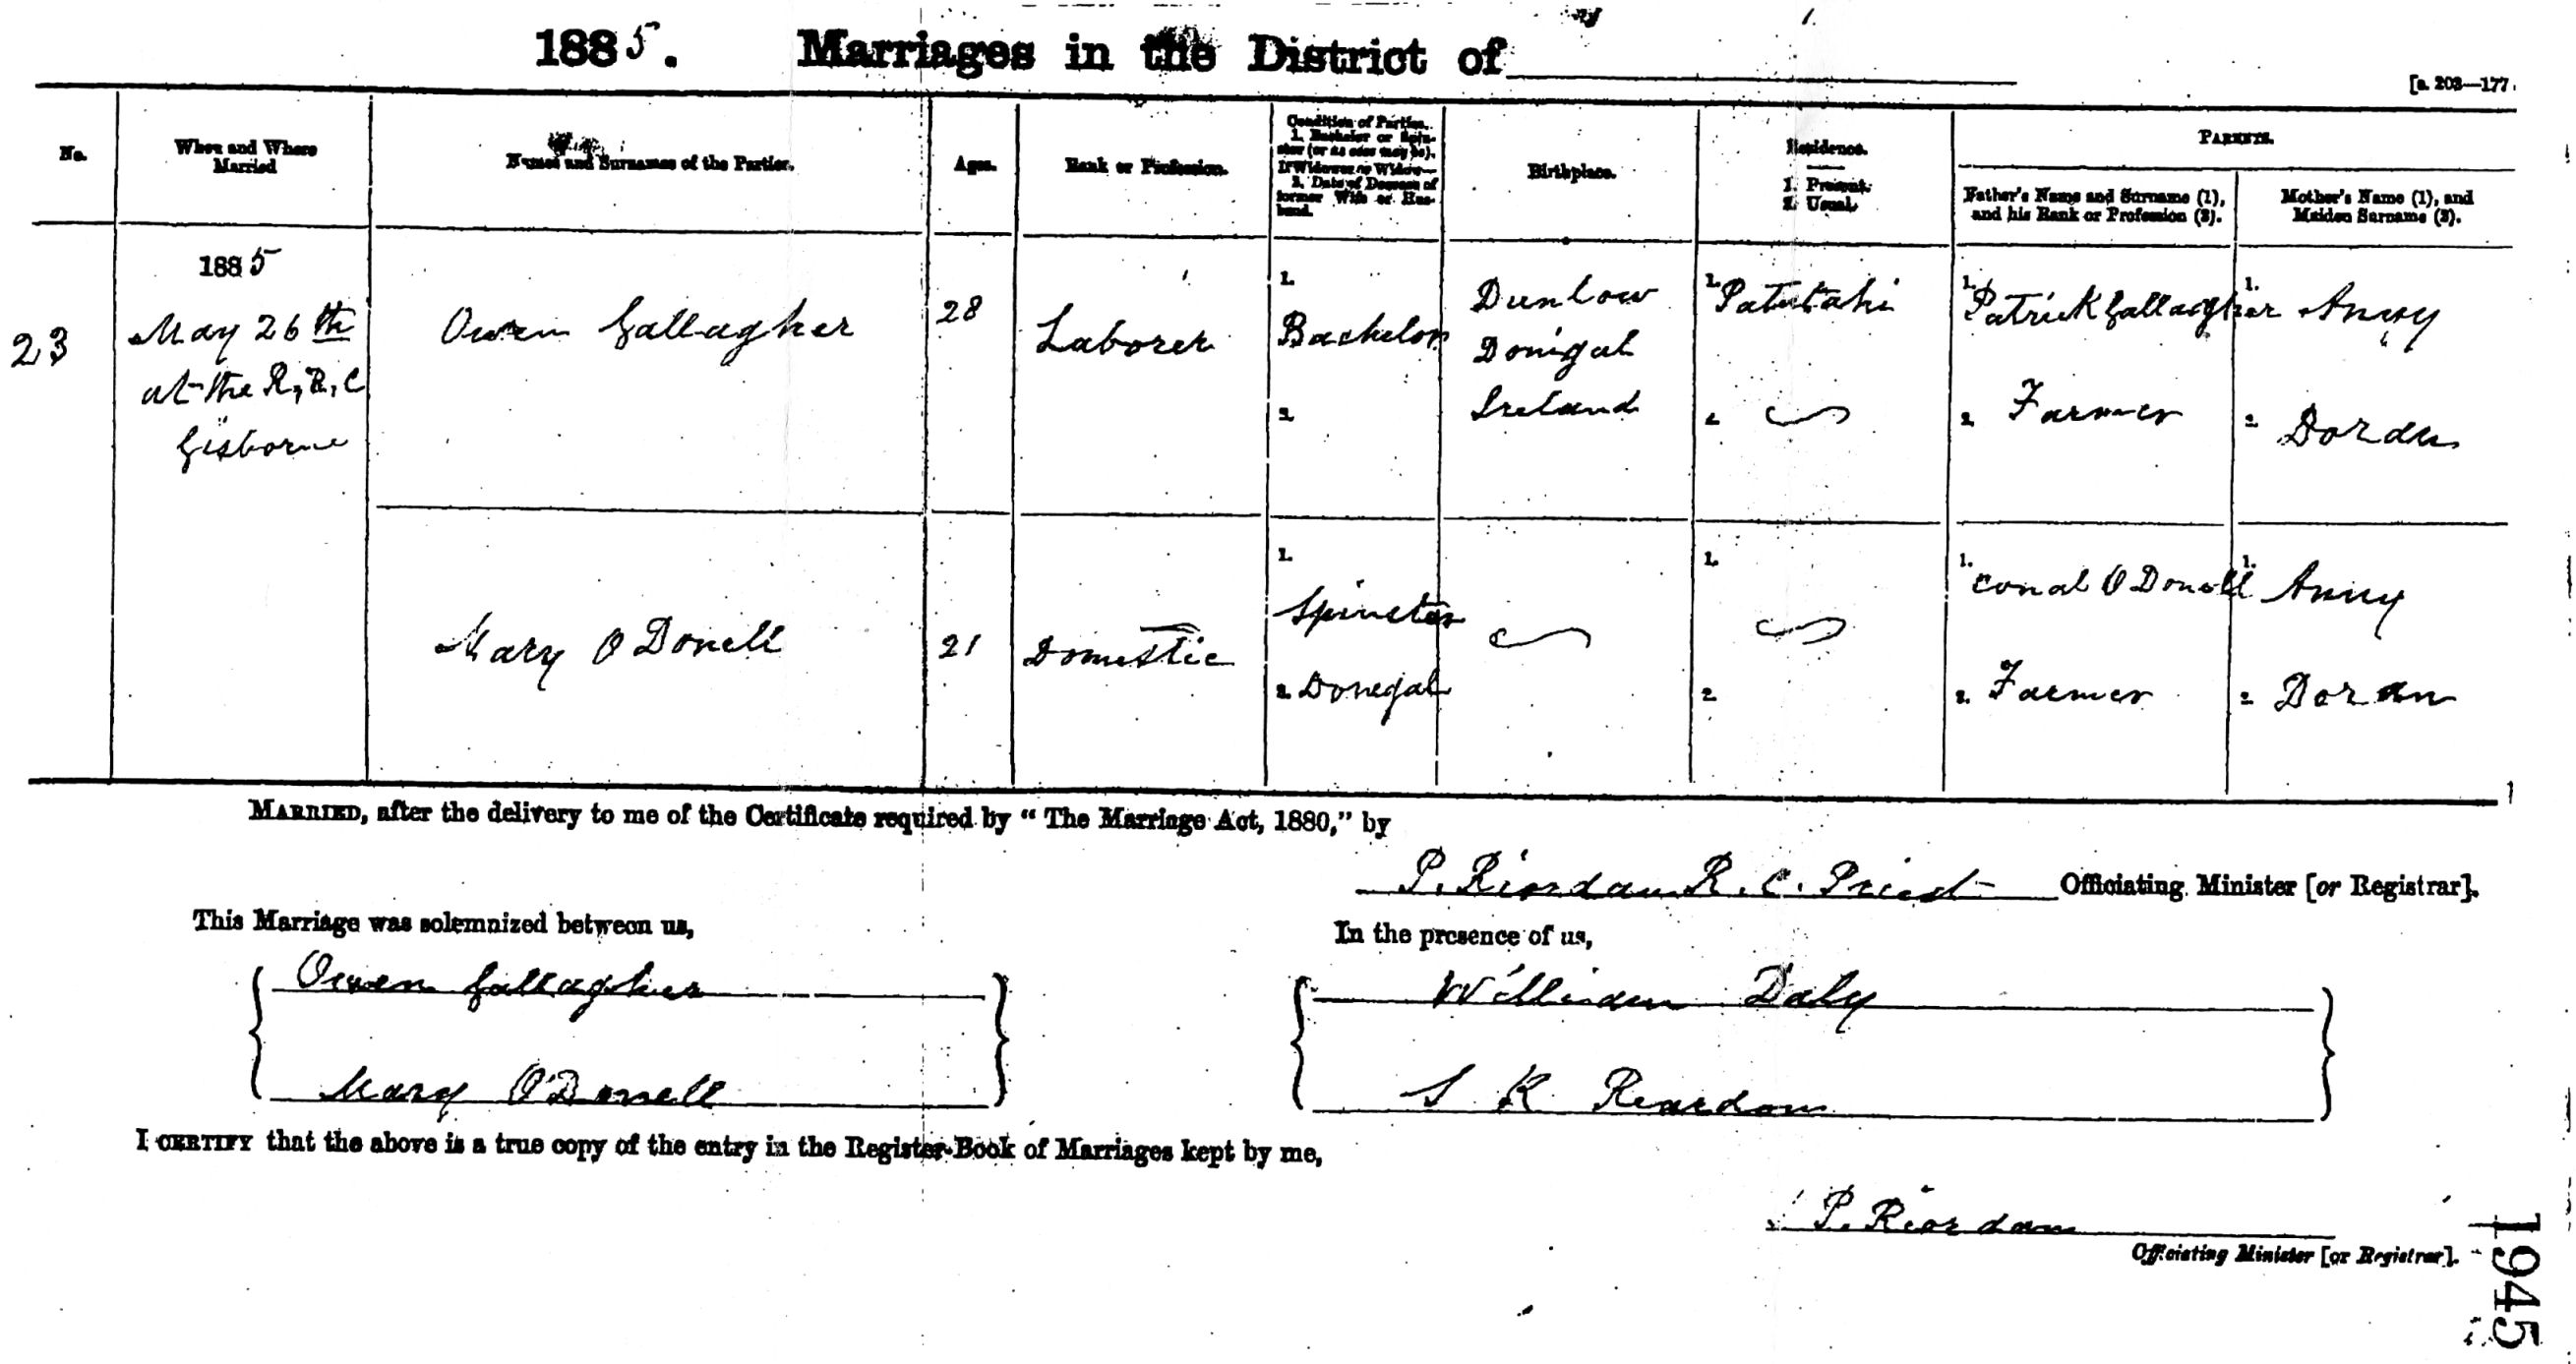 1885. Marriages in the District of
[a. 203—177.
No.
When and Where
Married
Names and Surnames of the Parties.
Ages.
Rank or Profession.
Condition of Parties.
1. Bachelor or Spin-
ster (or as case may be).
If Widower or Widow—
2. Date of Decease of
former Wife or Hus-
band.
Birthplace.
Residence.
1. Present.
2. Usual.
PARENTS.
Father's Name and Surname (1),
and his Rank or Profession (2).
Mother's Name (1), and
Maiden Surname (2).
23
1885
May 26th
at the R, R, C
Gisborne
Owen Gallagher
28
Laborer
1.
Bachelor
2.
Dunlow
Donigal
Ireland
1. Patutahi
2.
1. Patrick Gallagher
2. Farmer
1. Anny
2. Doran
Mary O Donell
21
Domestic
1.
Spinster
2. Donegal
1.
2.
1. Conal O Donell
2. Farmer
1. Anny
2. Doran
MARRIED, after the delivery to me of the Certificate required by "The Marriage Act, 1880," by
P. Riordan R. C. Priest Officiating Minister [or Registrar].
This Marriage was solemnized between us,
Owen Gallagher
Mary O'Donell
In the presence of us,
William Daly
S K Reardon
I CERTIFY that the above is a true copy of the entry in the Register-Book of Marriages kept by me,
P. Riordan
Officiating Minister [or Registrar].
1945